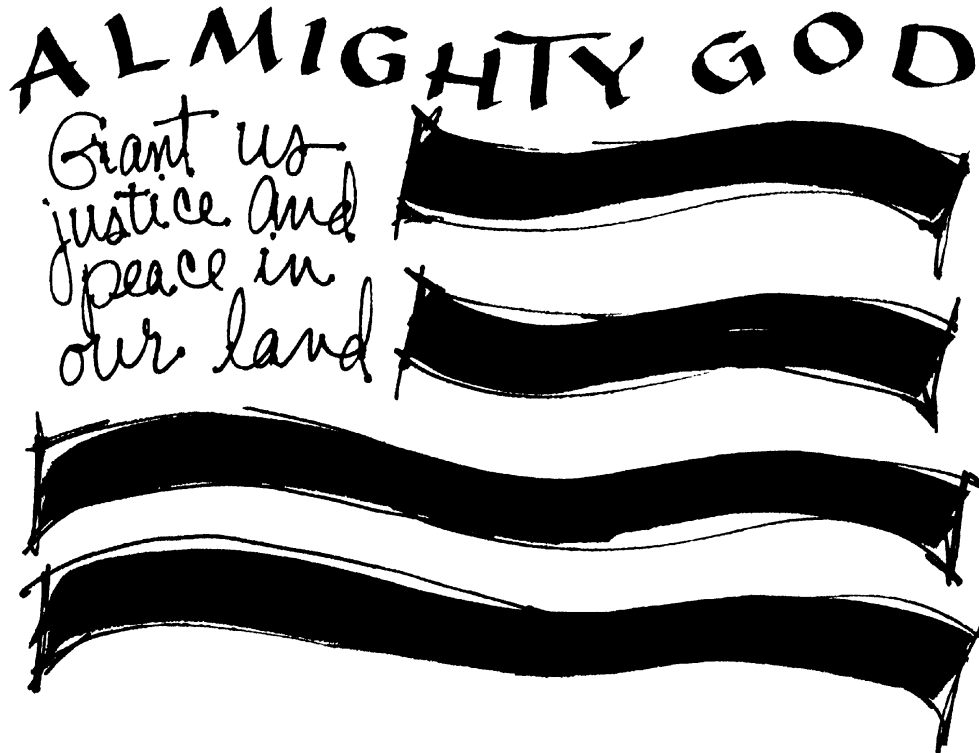 ALMIGHTY GOD
Grant us
justice and
peace in
our land